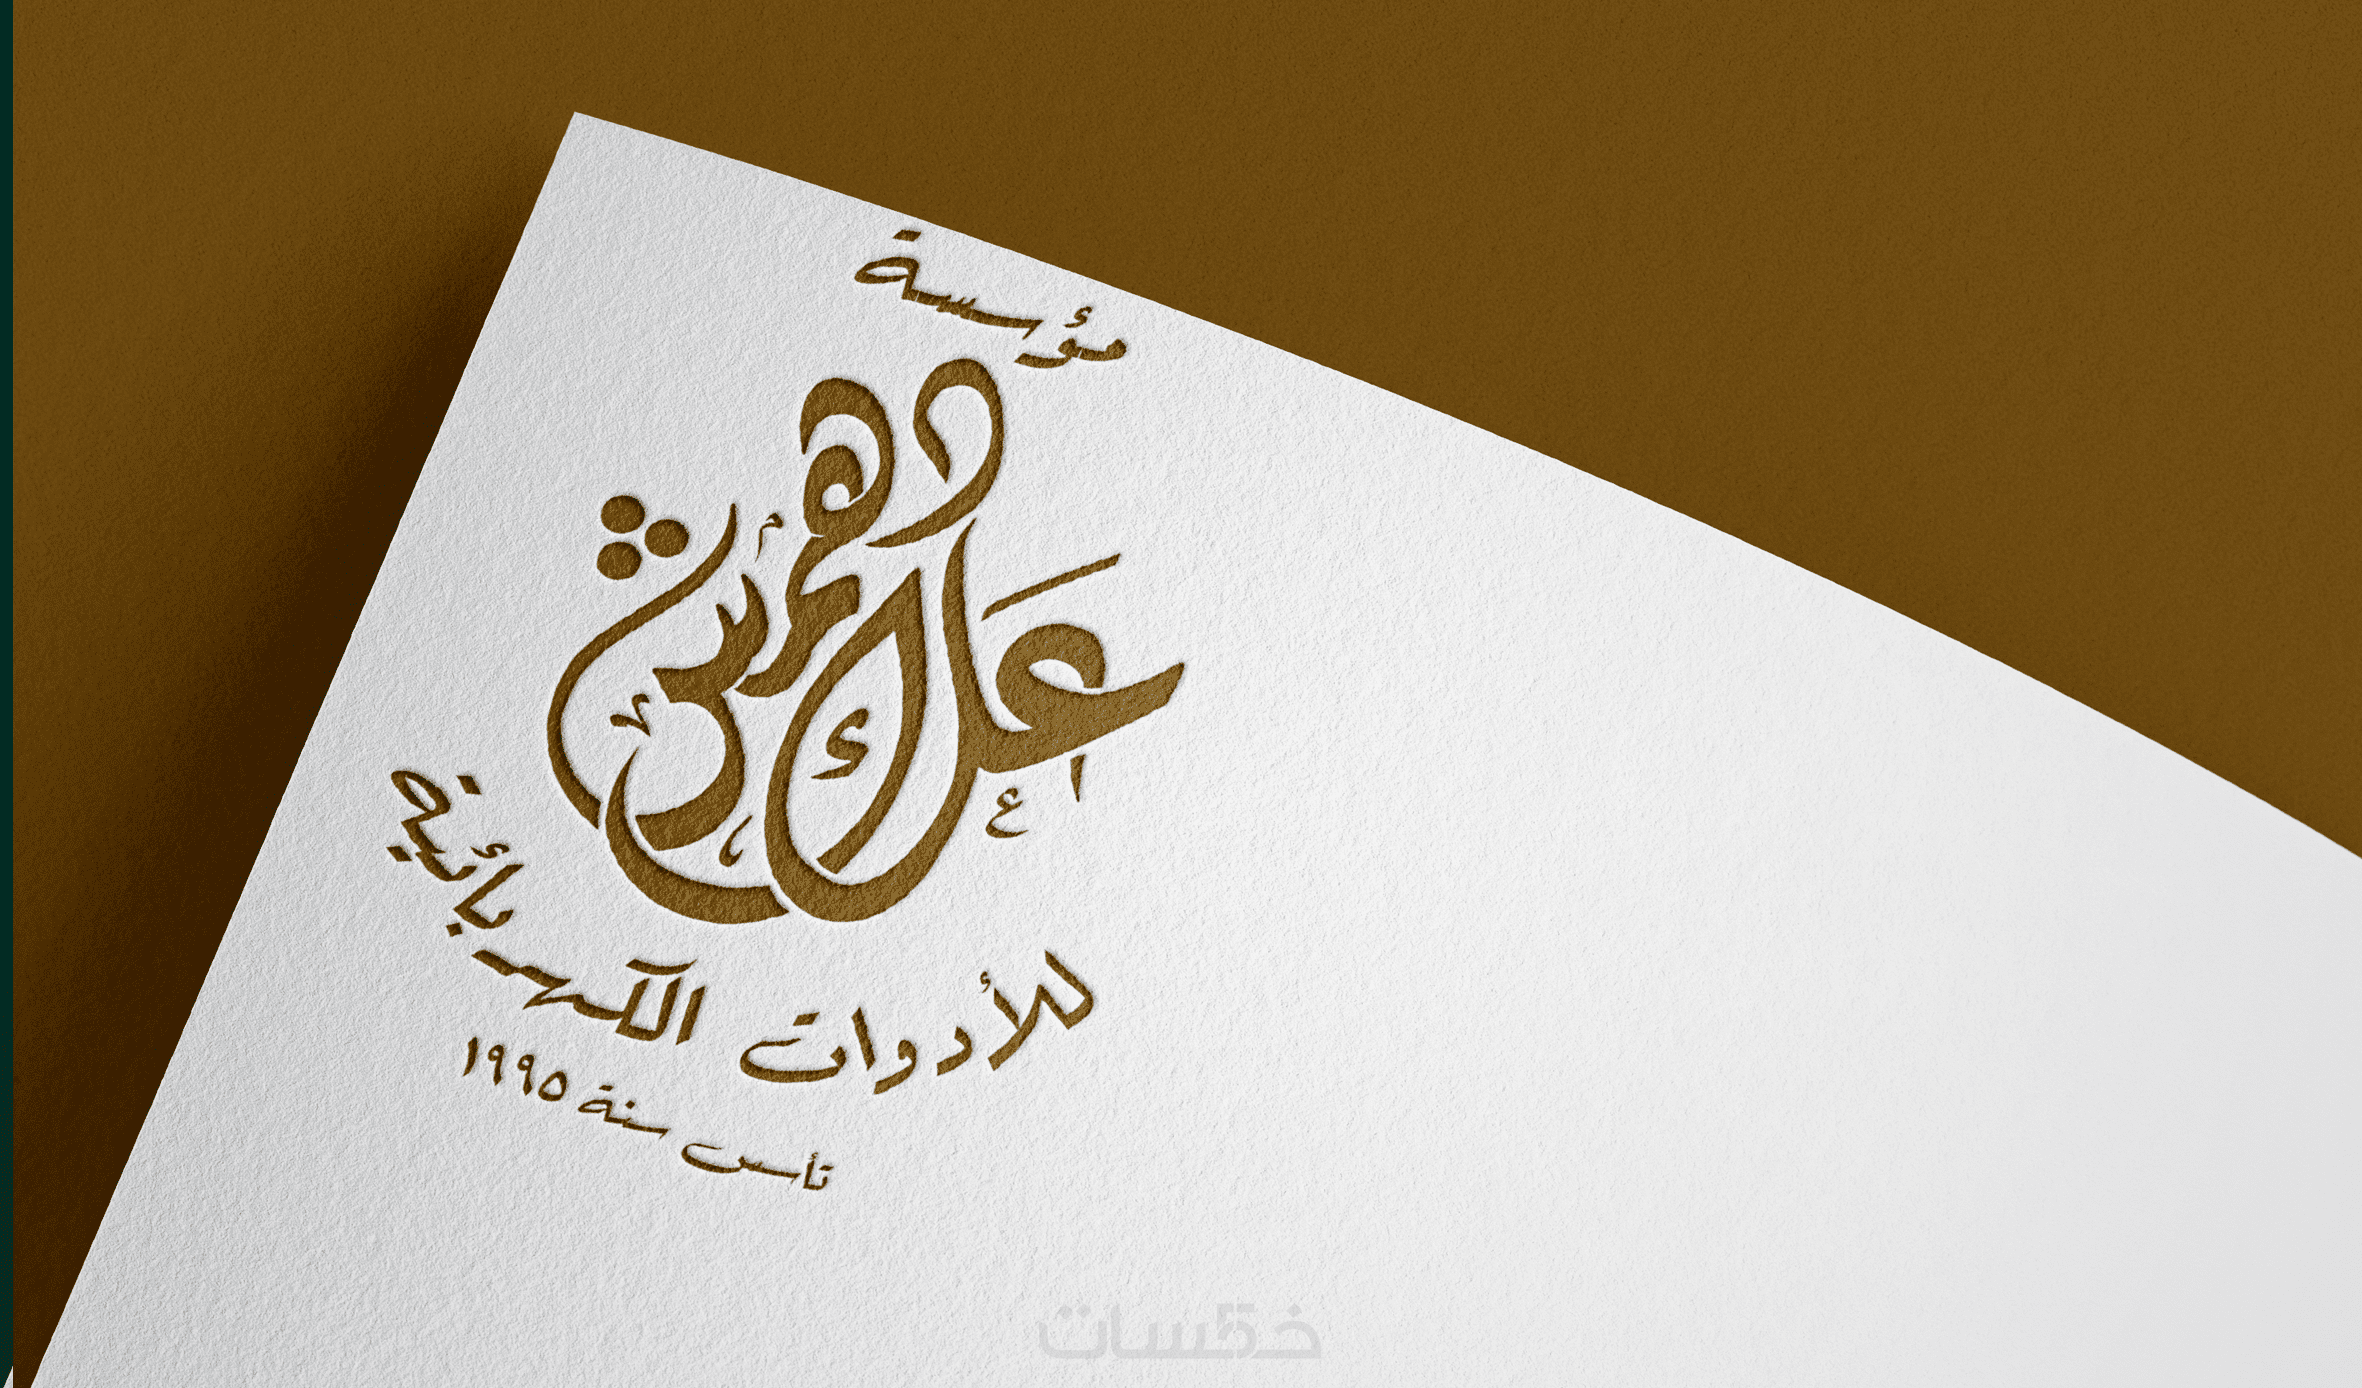 مؤسسة
علاء دهمش
للأدوات الكهربائية
تأسس سنة ١٩٩٥
خمسات